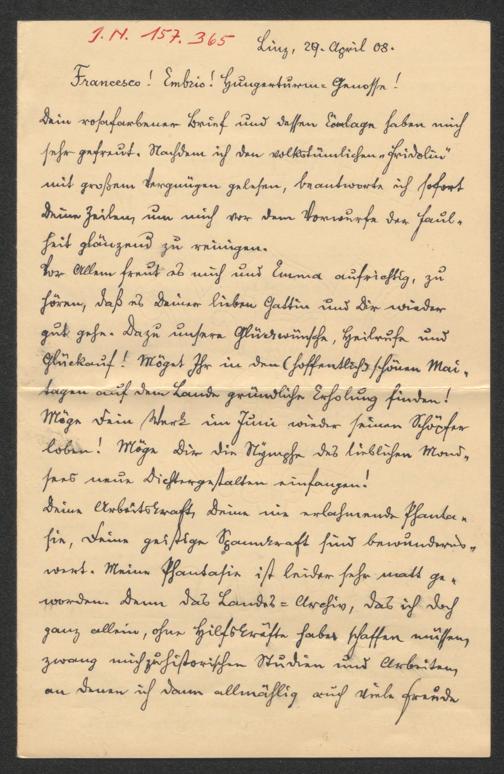 J. N. 157. 365
Linz, 29. April 08.
Francesco! Embrio! Hungerturm-Genosse!
Dein rosafarbener Brief und dessen Einlage haben mich
sehr gefreut. Nachdem ich den volkstümlichen „Fridolin“
mit großem Vergnügen gelesen, beantworte ich sofort
Deine Zeilen, um mich vor dem Vorwurfe der Faul-
heit glänzend zu reinigen.
Vor Allem freut es mich und Emma aufrichtig, zu
hören, daß es Deiner lieben Gattin und Dir wieder
gut gehe. Dazu unsere Glückwünsche, Heilrufe und
Glückauf! Möget Ihr in den (hoffentlich) schönen Mai-
tagen auf dem Lande gründliche Erholung finden!
Möge Dein Werk im Juni wieder seinen Schöpfer
loben! Möge Dir die Nymphe des lieblichen Mond-
sees neue Dichtergestalten einfangen!
Deine Arbeitskraft, Deine nie erlahmende Phanta-
sie, Deine geistige Spannkraft sind bewunderns-
wert. Meine Phantasie ist leider sehr matt ge-
worden. Denn das Landes-Archiv, das ich doch
ganz allein, ohne Hilfskräfte habe schaffen müssen,
zwang mich zu historischen Studien und Arbeiten,
an denen ich dann allmählig auch viele Freude